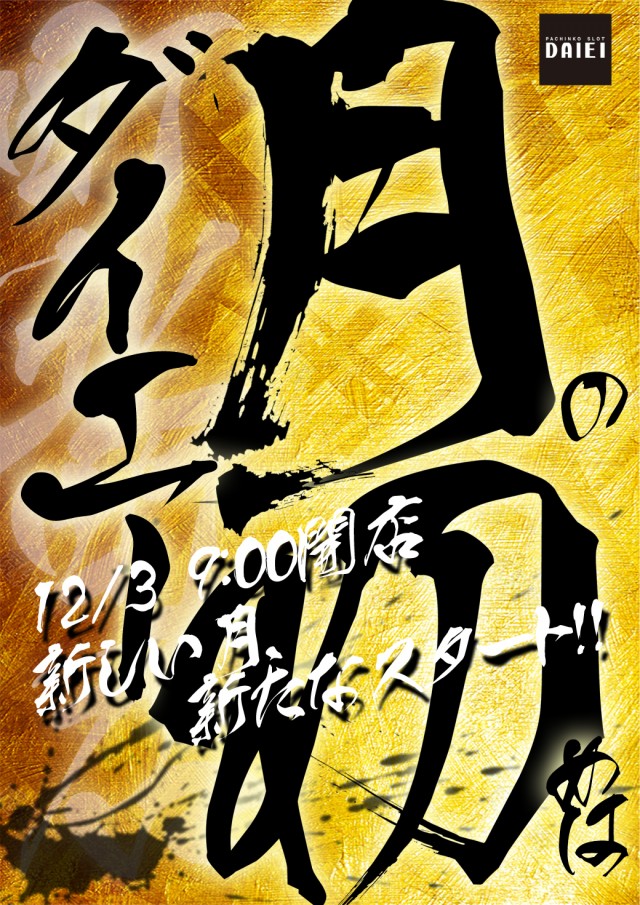 PACHINKO SLOT
DAIEI
月の初めは
ダイエー
12/3 9:00開店
新しい月、
新たなスタート!!